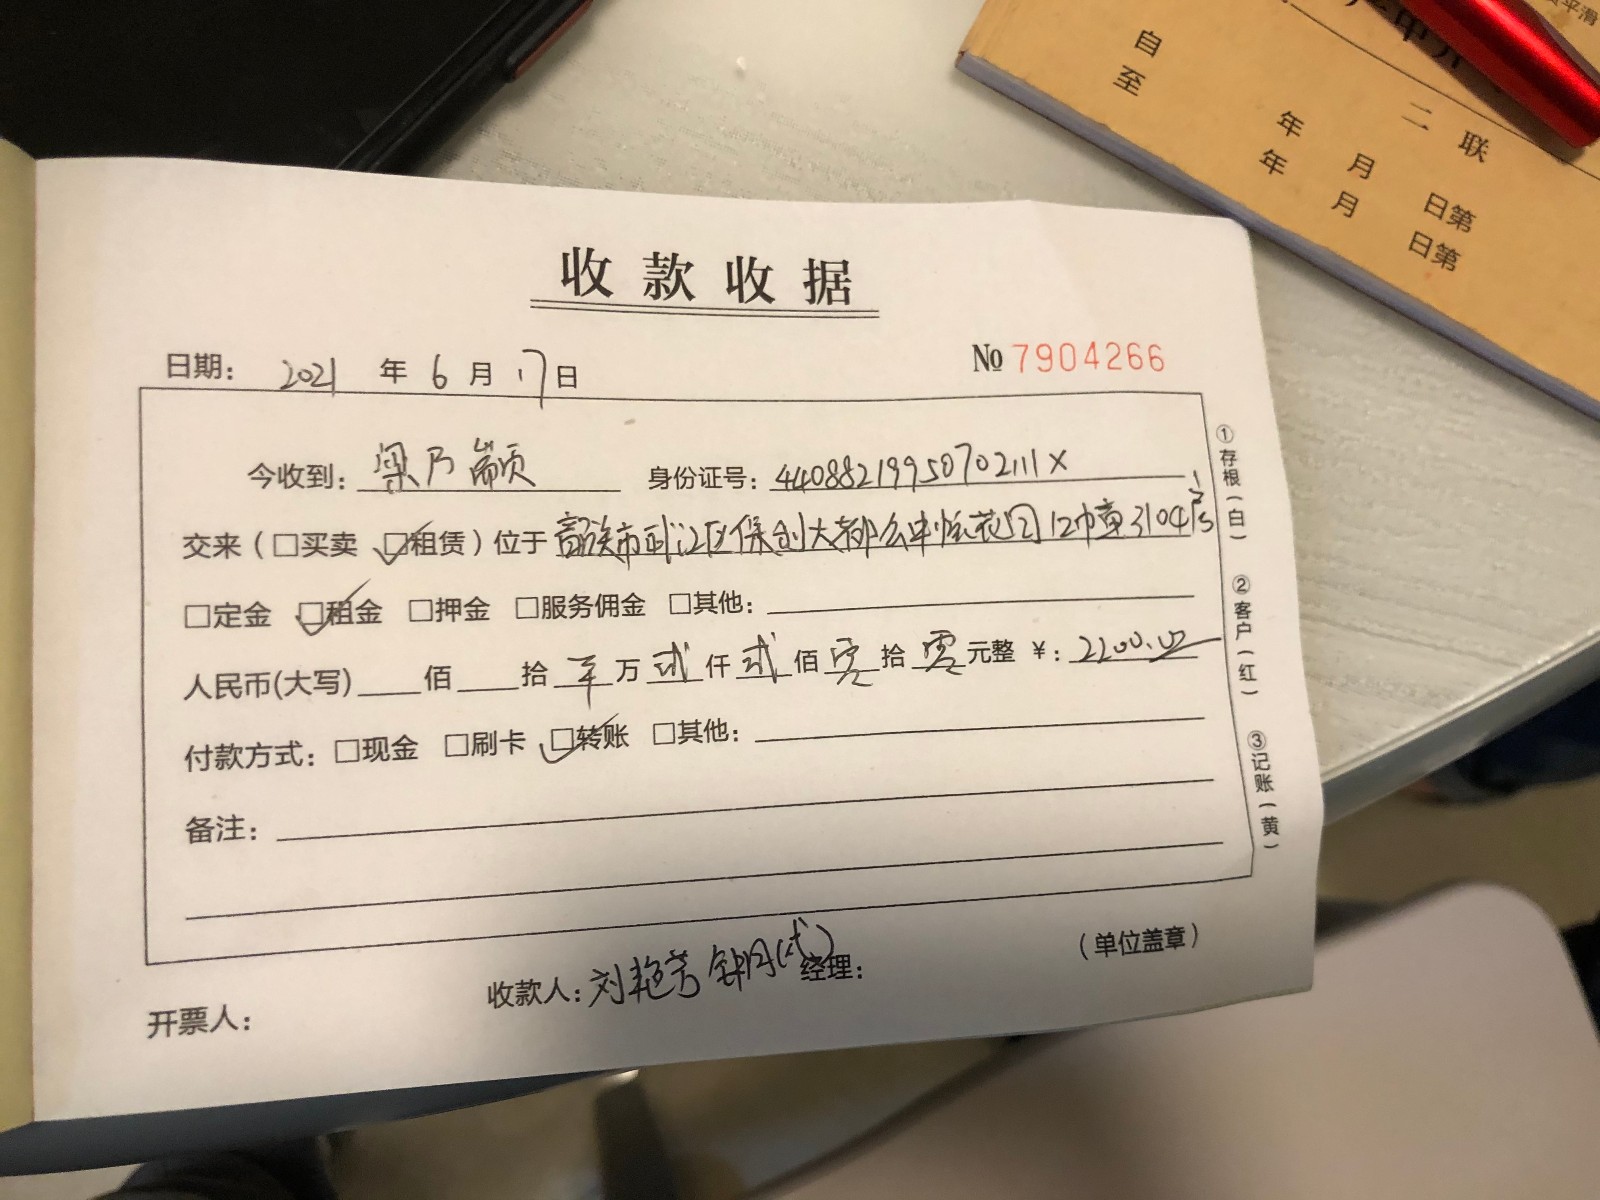 收款收据
日期： 2021 年 6 月 17 日
№ 7904266
今收到： 梁乃颛 身份证号： 44088219950702111X
交来（□买卖 ☑租赁）位于 韶关市武江区保利大都会中悦花园12幢3104房
□定金 ☑租金 □押金 □服务佣金 □其他：
人民币(大写) 佰 拾 万 贰 仟 贰 佰 零 拾 零 元整 ￥： 2200.00
付款方式： □现金 □刷卡 ☑转账 □其他：
备注：
开票人：
收款人： 刘艳芳 (代)
经理：
（单位盖章）
①存根（白）
②客户（红）
③记账（黄）
平滑
自 年 月 日第
至 年 月 日第
二联